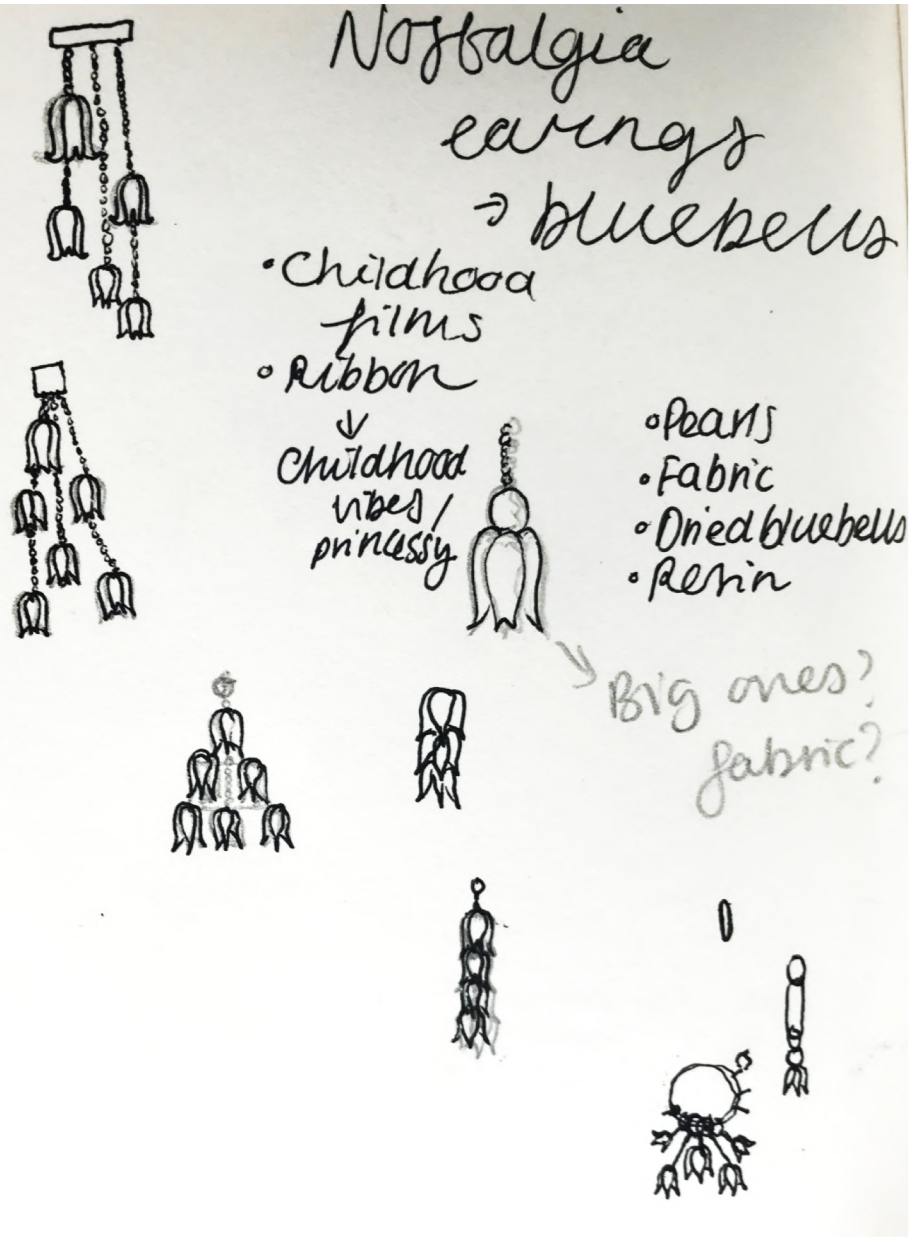 Nostalgia
earings
→ bluebells
• Childhood
films
• Ribbon
↓
Childhood
vibes/
princessy
• Pearls
• Fabric
• Dried bluebells
• Resin
→ Big ones?
fabric?